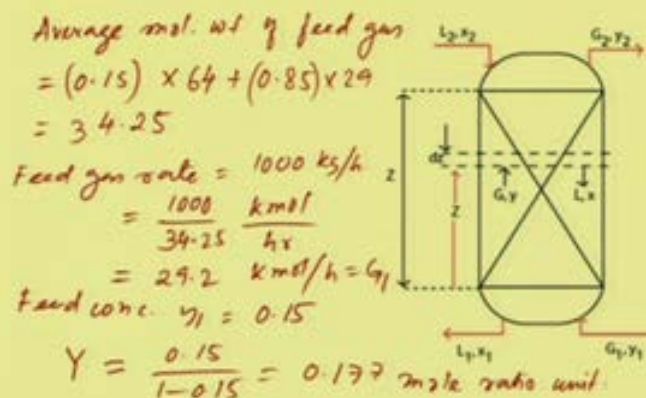 Average mol. wt of feed gas
= (0.15) × 64 + (0.85) × 29
= 34.25
Feed gas rate = 1000 kg/h
= 1000 / 34.25 kmol / hr
= 29.2 kmol/h = G1
Feed conc. y1 = 0.15
Y = 0.15 / 1-0.15 = 0.177 mole ratio unit.
L2,x2
G2,y2
dz
Z
Z
G,y
L,x
L1,x1
G1,y1